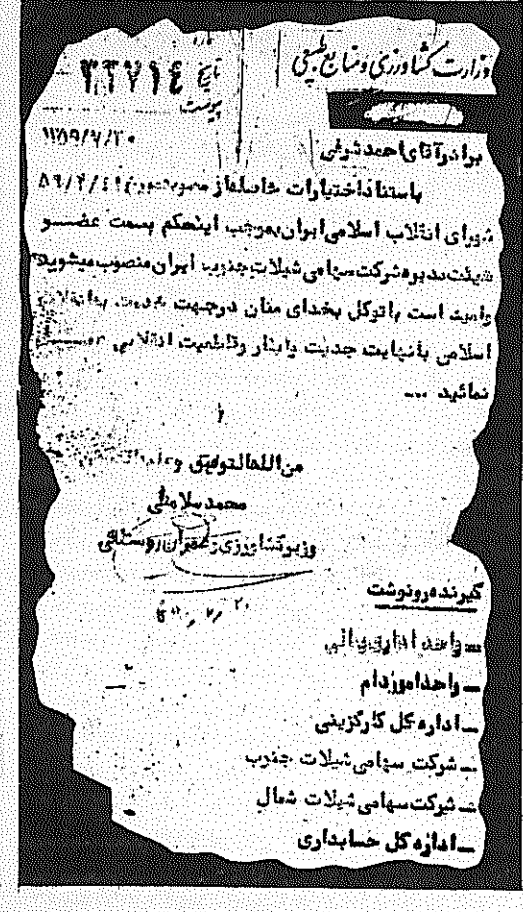 وزارت کشاورزی و منابع طبیعی
تاریخ ۳۲۷۱٤
پیوست
برادر آقای احمد شرفی
باستناد اختیارات حاصله از
شورای انقلاب اسلامی ایران بموجب اینحکم بسمت عضو
هیئت مدیره شرکت سهامی شیلات جنوب ایران منصوب میشوید
و امید است با توکل بخدای منان در جهت خدمت به انقلاب
اسلامی با نهایت جدیت و ایثار و قاطعیت انقلابی
نمائید ...
من الله التوفیق و علیه
محمد سلامتی
وزیر کشاورزی و عمران روستائی
گیرنده رونوشت
ــ واحد اداری و مالی
ــ واحد امور دام
ــ اداره کل کارگزینی
ــ شرکت سهامی شیلات جنوب
ــ شرکت سهامی شیلات شمال
ــ اداره کل حسابداری